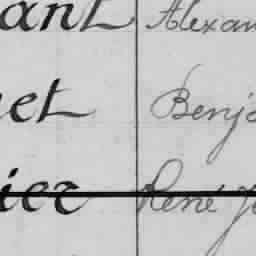 ant Alexan
et Benj
ier René J